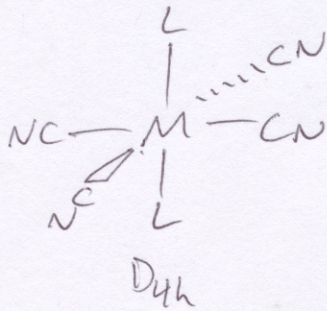 L
CN
NC M CN
NC
L
D4h